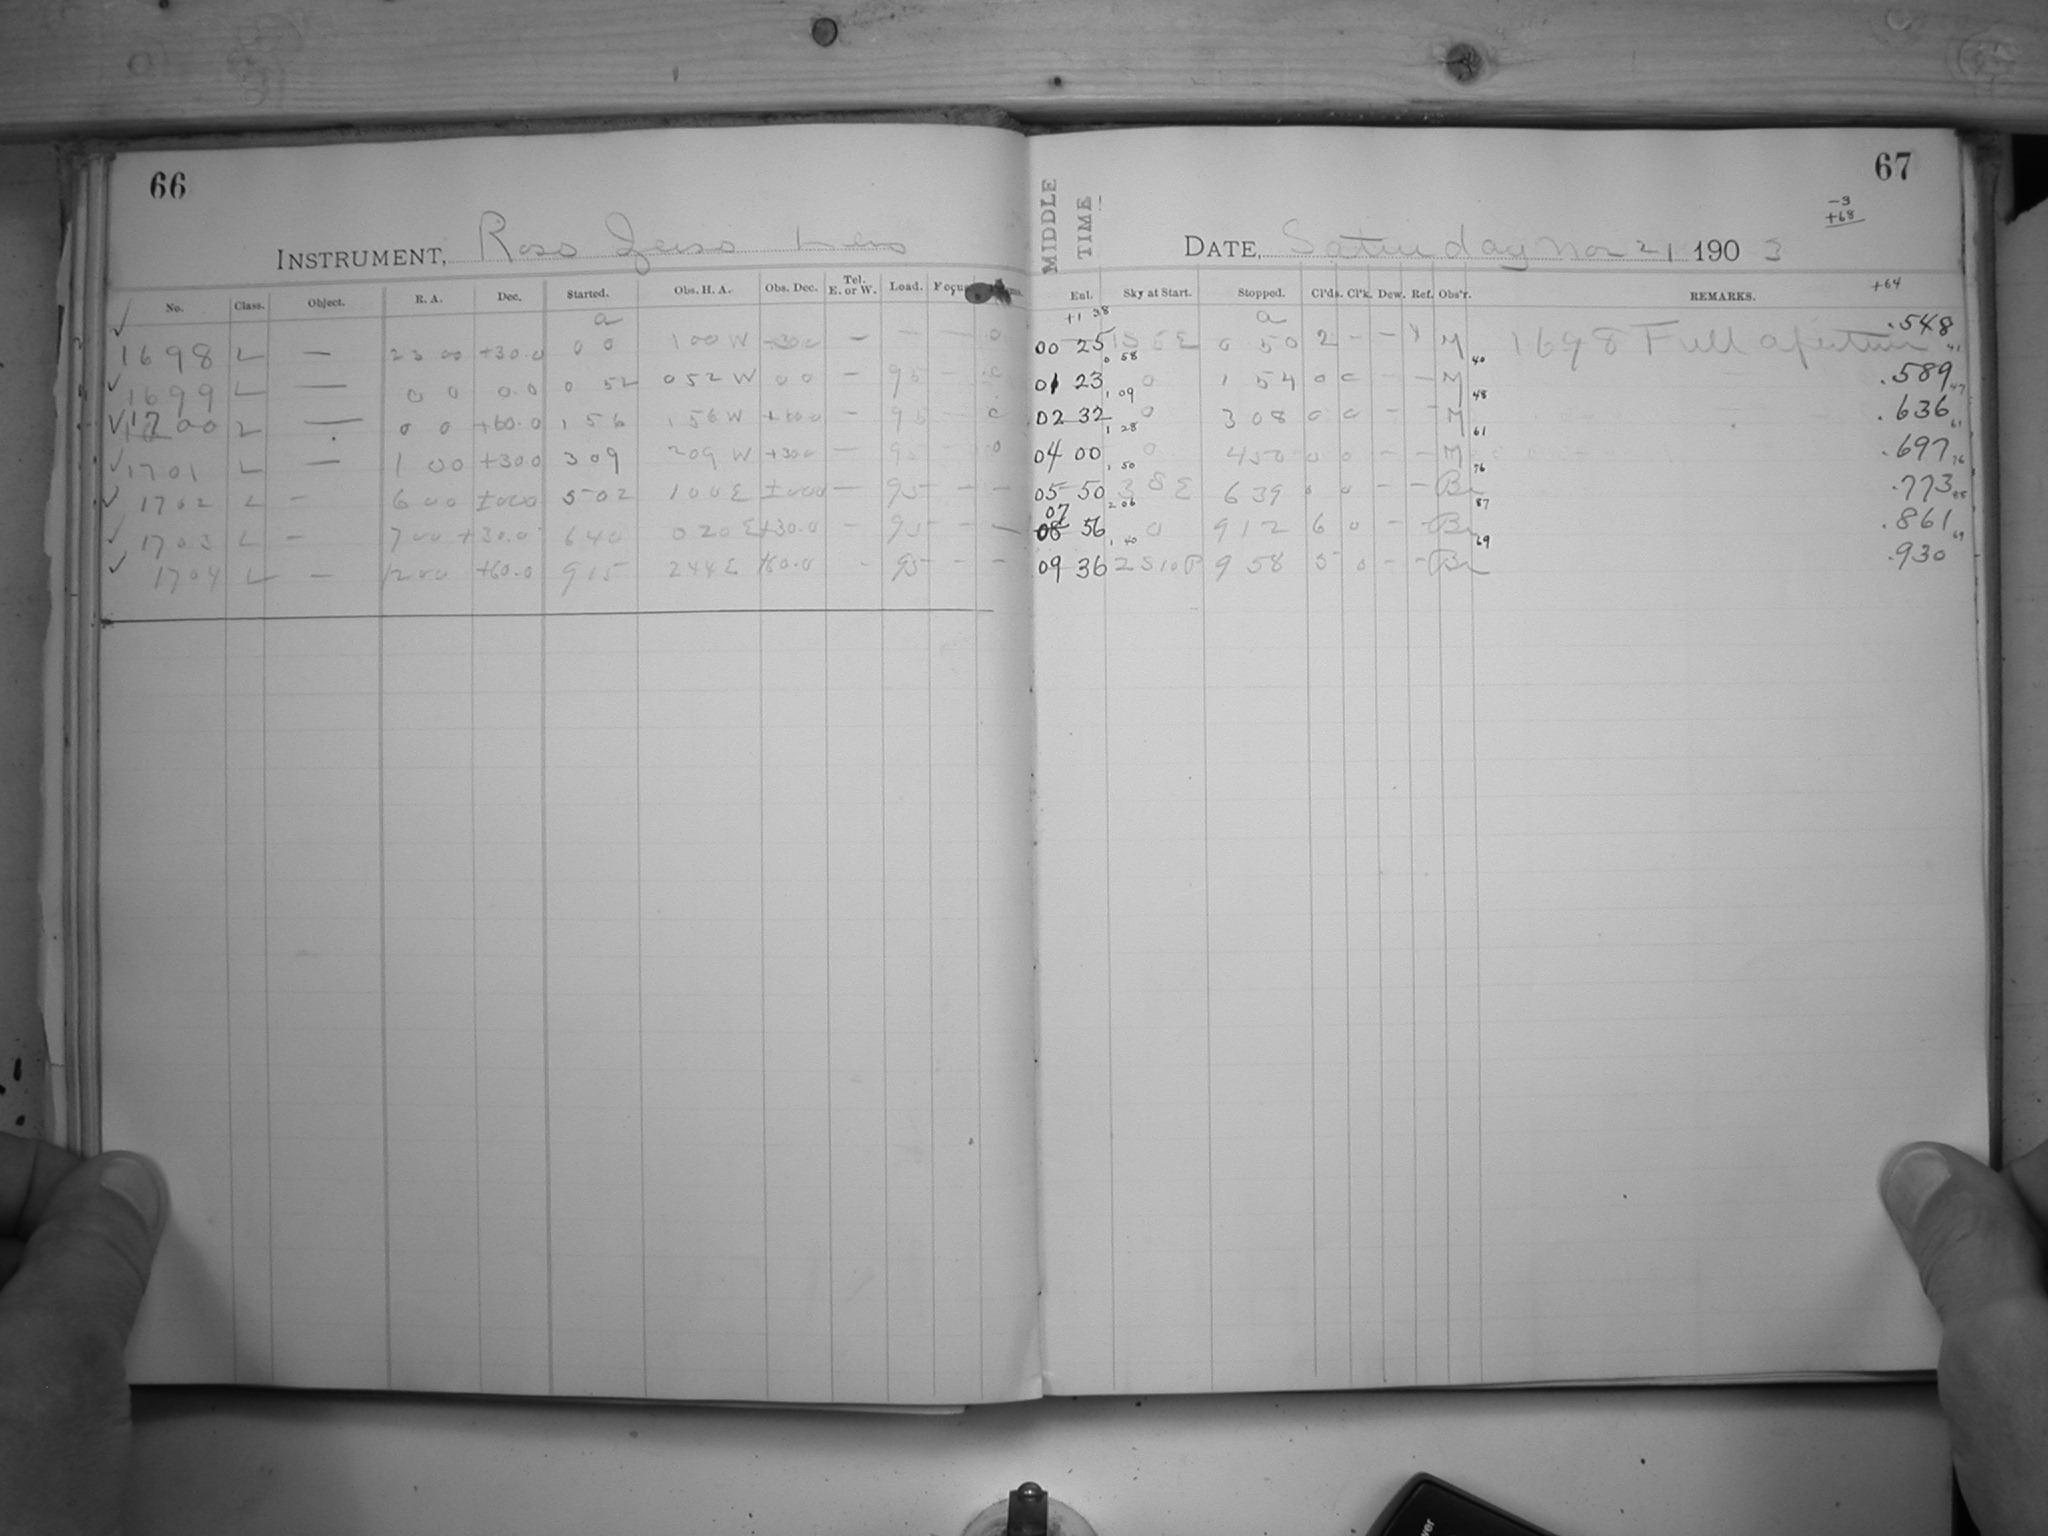 66
INSTRUMENT, Ross Zeiss Lens
No. Class. Object. R. A. Dec. Started. Obs. H. A. Obs. Dec. Tel. E. or W. Load. Focus
a
✓ 1698 L — 23 00 +30.0 0 0 1 00 W +30.0 — — — 0
✓ 1699 L — 0 0 0.0 0 52 0 52 W 0 0 — 95 — 0
✓ 1700 L — 0 0 +60.0 1 56 1 56 W +60.0 — 95 — 0
✓ 1701 L — 1 00 +30.0 3 09 2 09 W +30.0 — 95 — 0
✓ 1702 L — 6 00 ±00.0 5 02 1 00 E ±00.0 — 95 — —
✓ 1703 L — 7 00 +30.0 6 40 0 20 E +30.0 — 95 — —
✓ 1704 L — 12 00 +60.0 9 15 2 44 E +60.0 - 95 — —
67
MIDDLE TIME
-3
+68
DATE, Saturday Nov 21 1903
+64
Ent. Sky at Start. Stopped. Cl'ds. Cl'k. Dew. Ref. Obs'r. REMARKS.
+1 38 a
00 25 0 50 2 - - M 1698 Full aperture .548
0 58 40 41
01 23 0 1 54 0 0 - - M .589
1 09 48 47
02 32 0 3 08 0 0 - - M .636
1 28 61 61
04 00 0 4 50 0 0 - - M .697
1 50 76 76
05 50 3 8 E 6 39 0 0 - - Br .773
2 06 87 88
07
08 56 0 9 12 6 0 - - Br .861
1 40 69 69
09 36 2 S 10 P 9 58 5 0 - - Br .930